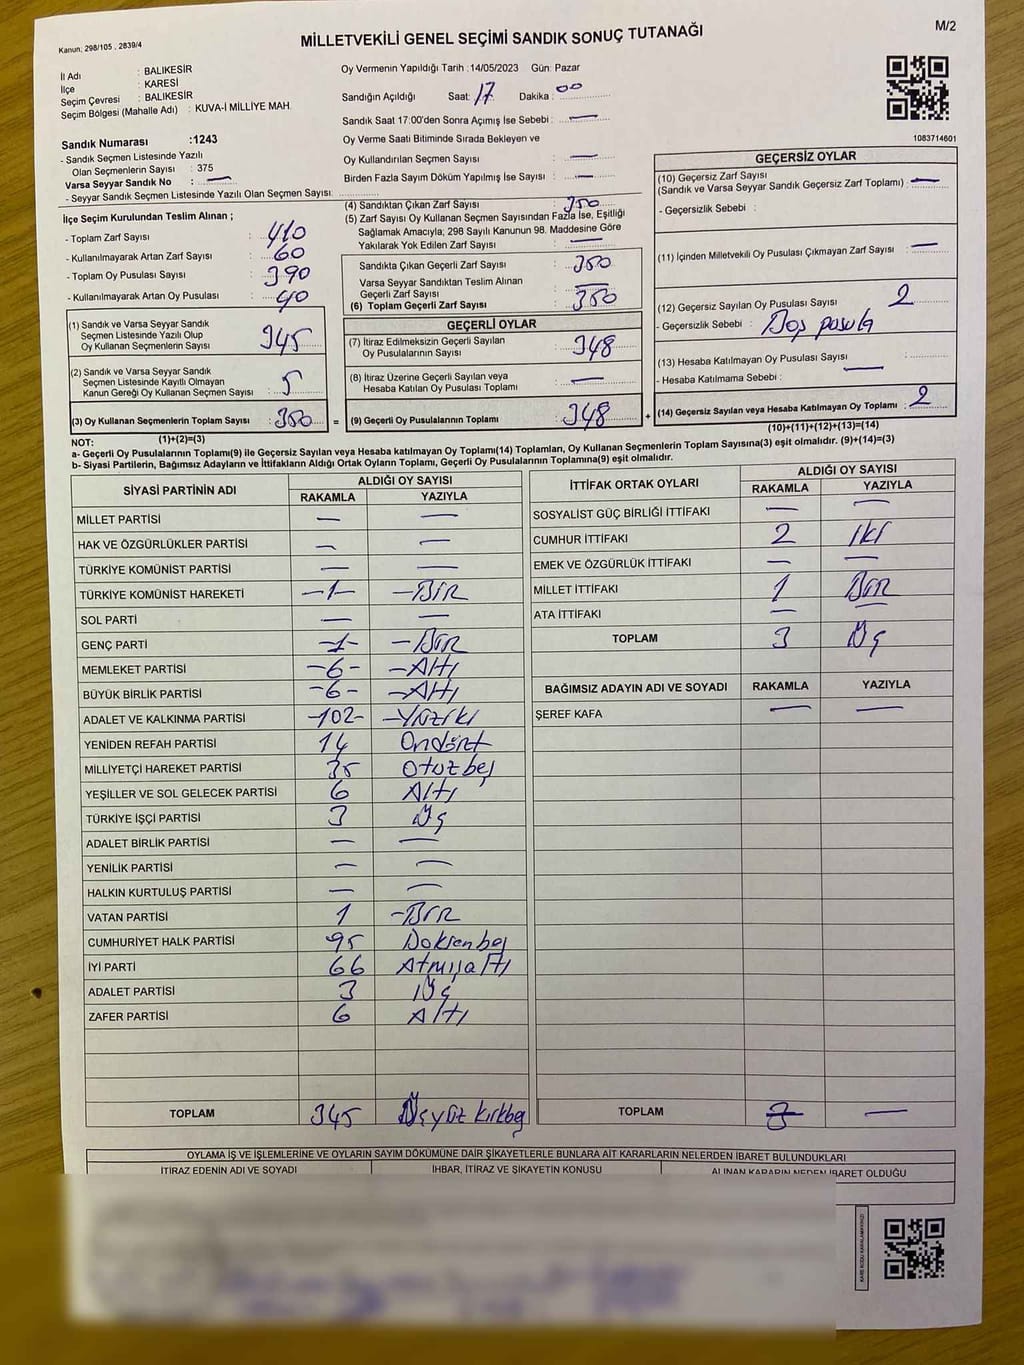 M/2
Kanun, 298/105 , 2839/4
MİLLETVEKİLİ GENEL SEÇİMİ SANDIK SONUÇ TUTANAĞI
İl Adı : BALIKESİR
İlçe : KARESİ
Seçim Çevresi : BALIKESİR
Seçim Bölgesi (Mahalle Adı) : KUVA-İ MİLLİYE MAH.
Sandık Numarası :1243
- Sandık Seçmen Listesinde Yazılı
Olan Seçmenlerin Sayısı : 375
Varsa Seyyar Sandık No : —
- Seyyar Sandık Seçmen Listesinde Yazılı Olan Seçmen Sayısı:
Oy Vermenin Yapıldığı Tarih :14/05/2023 Gün: Pazar
Sandığın Açıldığı Saat: 17 Dakika : 00
Sandık Saat 17:00'den Sonra Açımış İse Sebebi : —
Oy Verme Saati Bitiminde Sırada Bekleyen ve
Oy Kullandırılan Seçmen Sayısı : —
Birden Fazla Sayım Döküm Yapılmış İse Sayısı : —
1083714601
İlçe Seçim Kurulundan Teslim Alınan ;
- Toplam Zarf Sayısı : 410
- Kullanılmayarak Artan Zarf Sayısı : 60
- Toplam Oy Pusulası Sayısı : 390
- Kullanılmayarak Artan Oy Pusulası : 40
(1) Sandık ve Varsa Seyyar Sandık
Seçmen Listesinde Yazılı Olup
Oy Kullanan Seçmenlerin Sayısı : 345
(2) Sandık ve Varsa Seyyar Sandık
Seçmen Listesinde Kayıtlı Olmayan
Kanun Gereği Oy Kullanan Seçmen Sayısı : 5
(3) Oy Kullanan Seçmenlerin Toplam Sayısı : 350 =
(1)+(2)=(3)
(4) Sandıktan Çıkan Zarf Sayısı : 350
(5) Zarf Sayısı Oy Kullanan Seçmen Sayısından Fazla İse, Eşitliği
Sağlamak Amacıyla; 298 Sayılı Kanunun 98. Maddesine Göre
Yakılarak Yok Edilen Zarf Sayısı : —
Sandıkta Çıkan Geçerli Zarf Sayısı : 350
Varsa Seyyar Sandıktan Teslim Alınan
Geçerli Zarf Sayısı : —
(6) Toplam Geçerli Zarf Sayısı : 350
GEÇERLİ OYLAR
(7) İtiraz Edilmeksizin Geçerli Sayılan
Oy Pusulalarının Sayısı : 348
(8) İtiraz Üzerine Geçerli Sayılan veya
Hesaba Katılan Oy Pusulası Toplamı : —
(9) Geçerli Oy Pusulalarının Toplamı : 348 +
GEÇERSİZ OYLAR
(10) Geçersiz Zarf Sayısı
(Sandık ve Varsa Seyyar Sandık Geçersiz Zarf Toplamı) : —
- Geçersizlik Sebebi :
(11) İçinden Milletvekili Oy Pusulası Çıkmayan Zarf Sayısı : —
(12) Geçersiz Sayılan Oy Pusulası Sayısı : 2
- Geçersizlik Sebebi : Boş pusula
(13) Hesaba Katılmayan Oy Pusulası Sayısı : —
- Hesaba Katılmama Sebebi :
(14) Geçersiz Sayılan veya Hesaba Katılmayan Oy Toplamı : 2
(10)+(11)+(12)+(13)=(14)
NOT:
a- Geçerli Oy Pusulalarının Toplamı(9) ile Geçersiz Sayılan veya Hesaba katılmayan Oy Toplamı(14) Toplamları, Oy Kullanan Seçmenlerin Toplam Sayısına(3) eşit olmalıdır. (9)+(14)=(3)
b- Siyasi Partilerin, Bağımsız Adayların ve İttifakların Aldığı Ortak Oyların Toplamı, Geçerli Oy Pusulalarının Toplamına(9) eşit olmalıdır.
SİYASİ PARTİNİN ADI ALDIĞI OY SAYISI
RAKAMLA YAZIYLA
MİLLET PARTİSİ — —
HAK VE ÖZGÜRLÜKLER PARTİSİ — —
TÜRKİYE KOMÜNİST PARTİSİ — —
TÜRKİYE KOMÜNİST HAREKETİ -1- -BİR
SOL PARTİ — —
GENÇ PARTİ -1- -BİR
MEMLEKET PARTİSİ -6- -Altı
BÜYÜK BİRLİK PARTİSİ -6- -Altı
ADALET VE KALKINMA PARTİSİ -102- -Yüziki
YENİDEN REFAH PARTİSİ 14 Ondört
MİLLİYETÇİ HAREKET PARTİSİ 35 Otuzbeş
YEŞİLLER VE SOL GELECEK PARTİSİ 6 Altı
TÜRKİYE İŞÇİ PARTİSİ 3 Üç
ADALET BİRLİK PARTİSİ — —
YENİLİK PARTİSİ — —
HALKIN KURTULUŞ PARTİSİ — —
VATAN PARTİSİ 1 -BİR
CUMHURİYET HALK PARTİSİ 95 Doksenbeş
İYİ PARTİ 66 Atmışaltı
ADALET PARTİSİ 3 Üç
ZAFER PARTİSİ 6 Altı
TOPLAM 345 Üçyüz kırkbeş
İTTİFAK ORTAK OYLARI ALDIĞI OY SAYISI
RAKAMLA YAZIYLA
SOSYALİST GÜÇ BİRLİĞİ İTTİFAKI — —
CUMHUR İTTİFAKI 2 İki
EMEK VE ÖZGÜRLÜK İTTİFAKI — —
MİLLET İTTİFAKI 1 Bir
ATA İTTİFAKI — —
TOPLAM 3 Üç
BAĞIMSIZ ADAYIN ADI VE SOYADI RAKAMLA YAZIYLA
ŞEREF KAFA — —
TOPLAM —
OYLAMA İŞ VE İŞLEMLERİNE VE OYLARIN SAYIM DÖKÜMÜNE DAİR ŞİKAYETLERLE BUNLARA AİT KARARLARIN NELERDEN İBARET BULUNDUKLARI
İTİRAZ EDENİN ADI VE SOYADI İHBAR, İTİRAZ VE ŞİKAYETİN KONUSU ALINAN KARARIN NEDEN İBARET OLDUĞU
KARE KODU KARALAMAYINIZ!